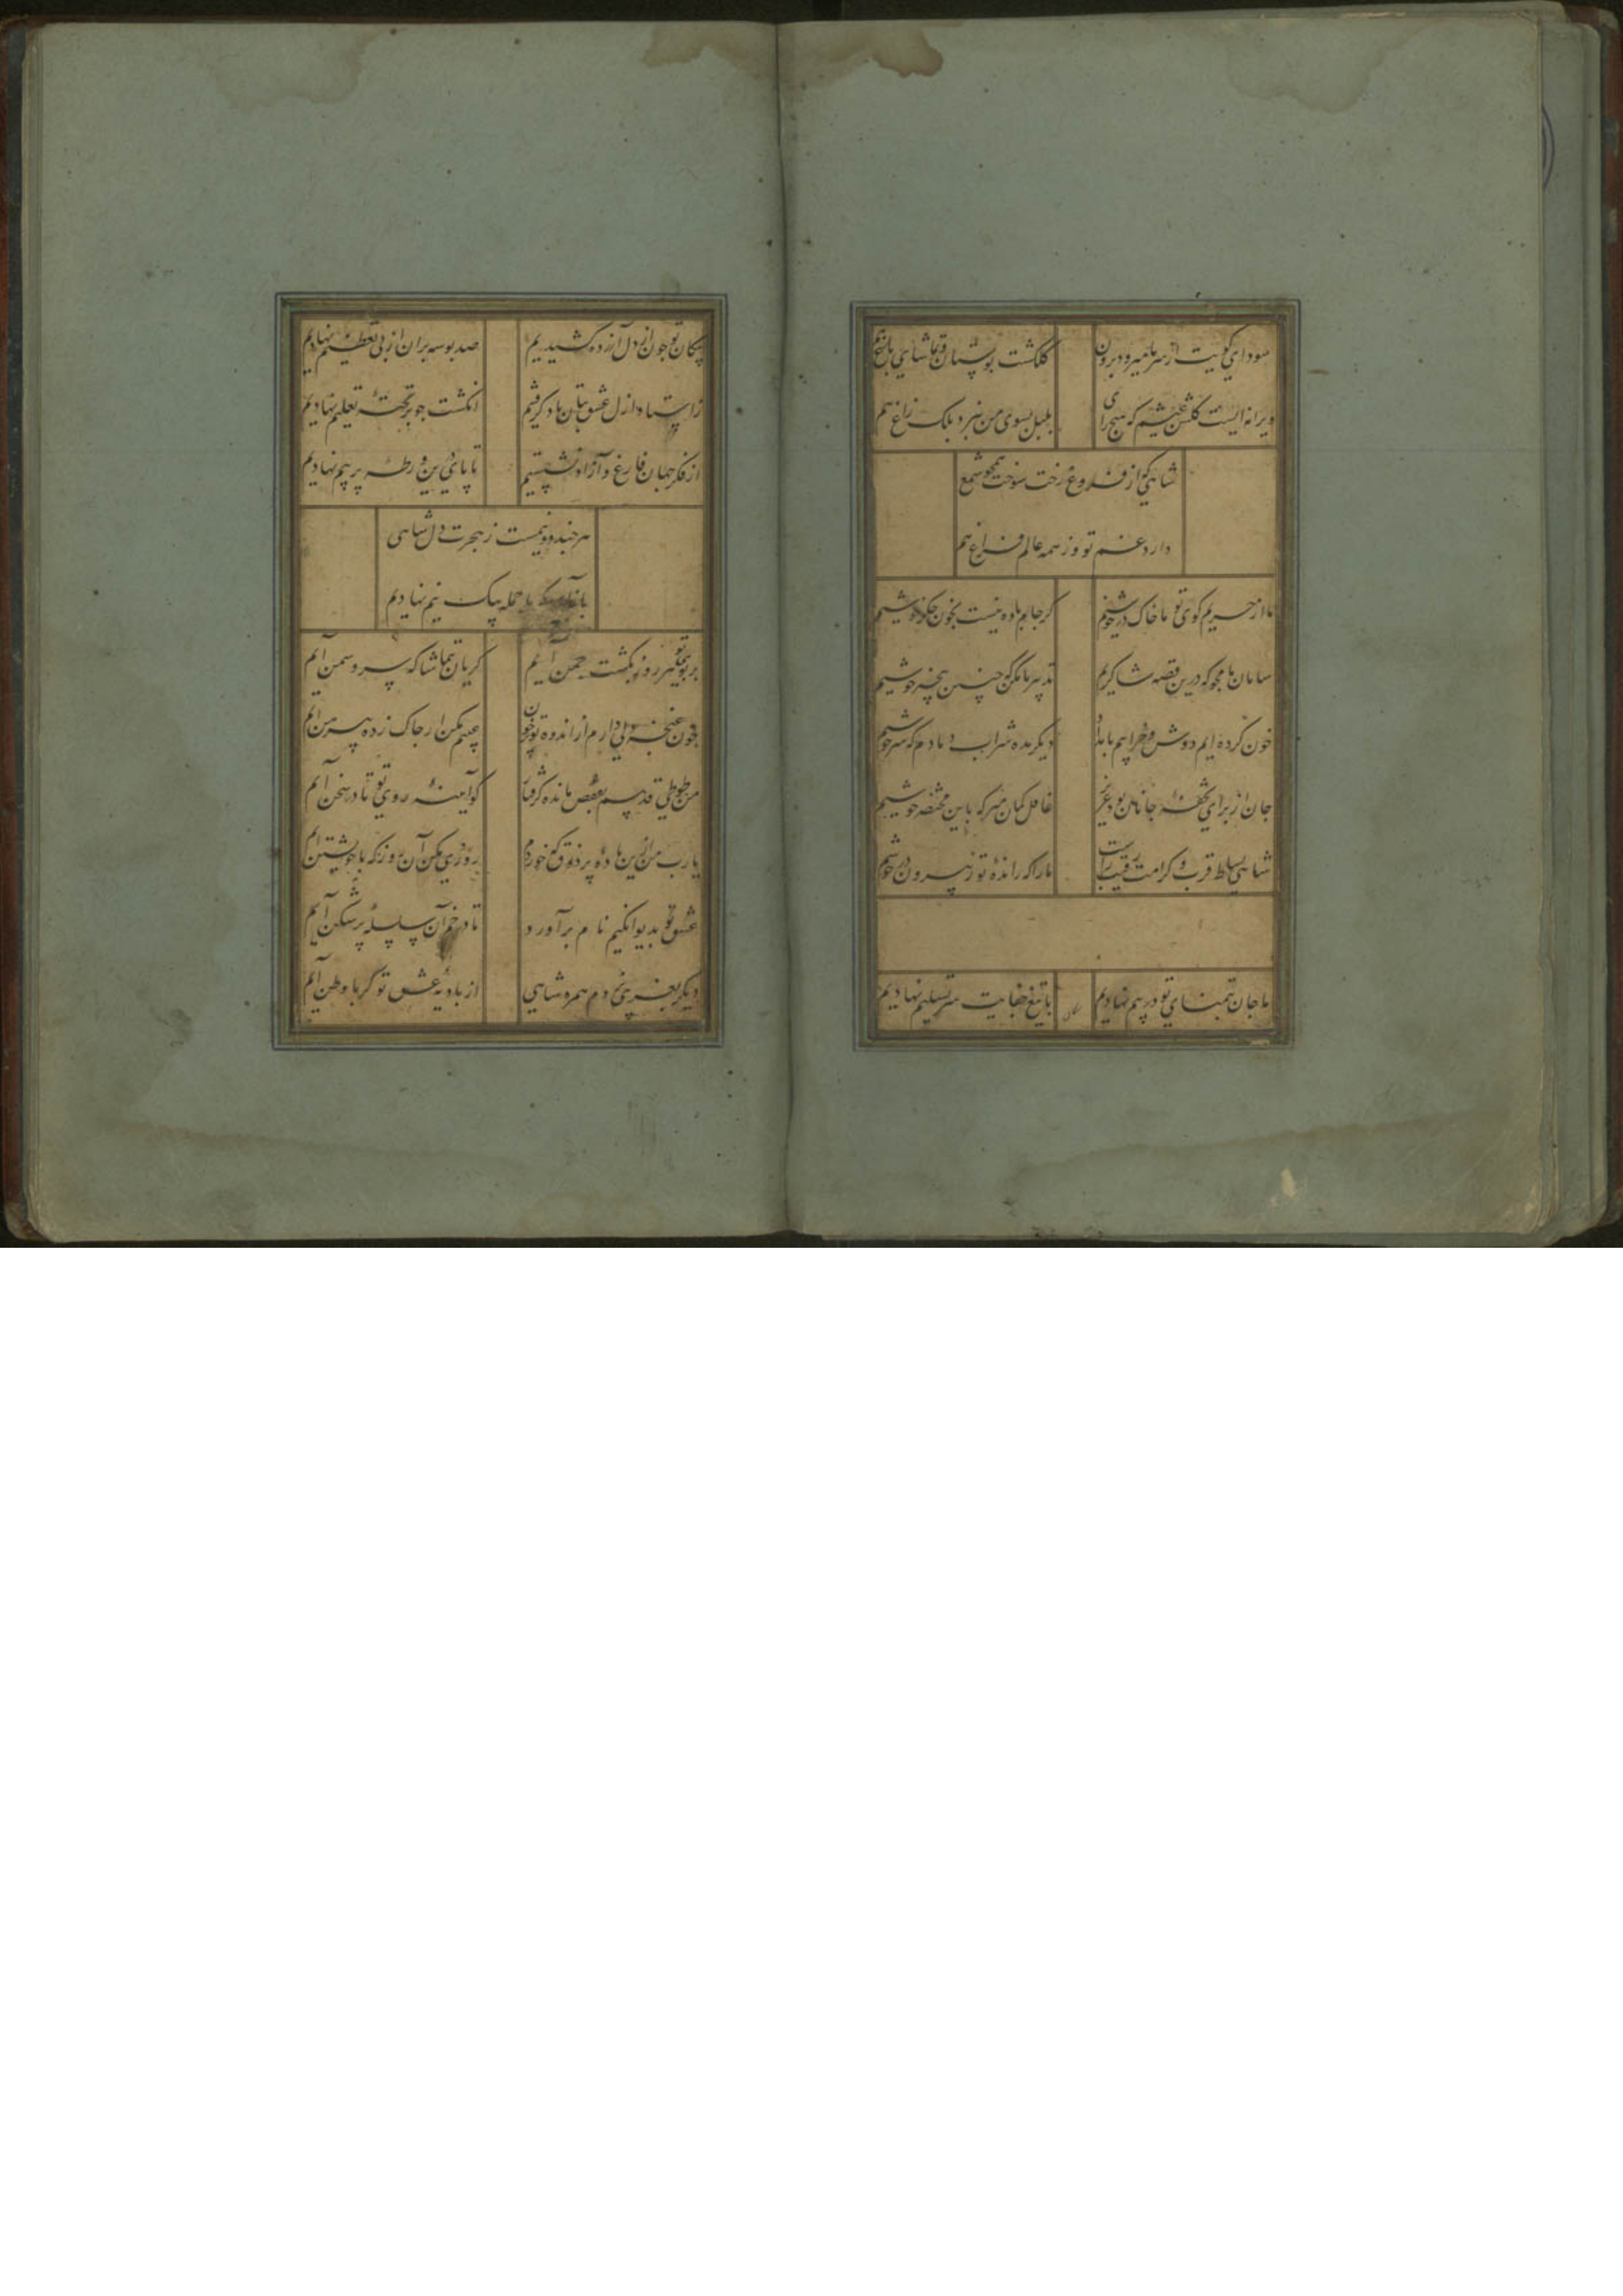 سودای کویت از سر ما میرود برون
کلکشت بوستان و تماشای باغ هم
ویرانه ایست کلشن عیشم که هیچ رای
بلبل بسوی من نبرد بلک زاغ هم
شاهی کز از فروغ رخت سوخت همچو شمع
دارد غم تو وز همه عالم فراغ هم
ما از حریم کوی تو با خاک در خوشیم
کر جام باده نیست بخون جکر خوشیم
سامان ما مجو که درین قصه شاکریم
تدبیر ما مکن که چنین بیخبر خوشیم
خون کرده ایم دوش و خرابیم بامداد
دیکر مده شراب دمادم که سرخوشیم
جان از برای تحفه جانان بود عزیز
غافل کمان مبر که باین مختصر خوشیم
شاهی بساط قرب و کرامت رقیب راست
ما را که رانده تو ز بیرون در خوشیم
ما جان بتمنای تو در بیم نهادیم
با تیغ جفایت سر تسلیم نهادیم
پیکان تو چون از دل آزرده کشیدیم
صد بوسه بران از پی تعظیم نهادیم
ز استاد ازل عشق بتان یاد کرفتیم
انکشت چو بر تخته تعلیم نهادیم
از فکر جهان فارغ و آزاد نشستیم
تا پای درین ورطه پر بیم نهادیم
هر چند دو نیمست ز هجرت دل شاهی
با جمله بیک نیم نهادیم
بر بوی تو هر روز بکشت چمن آیم
کریان بتماشا که سرو و سمن آیم
چون غنچه دلی دارم از اندوه تو پر خون
عیبم مکن ار چاک زده پیرهن آیم
من طوطی قدسم بقفص مانده کرفتار
کو آینه روی تو تا در سخن آیم
یا رب من ازین باده پر ذوق که خوردم
روزی مکن آن روز که با خویشتن آیم
عشق تو بدیوانکیم نام برآورد
تا در خم آن سلسله پر شکن آیم
دیکر بغریبی نخ دم همره شاهی
از بادیه عشق تو کر با وطن آیم